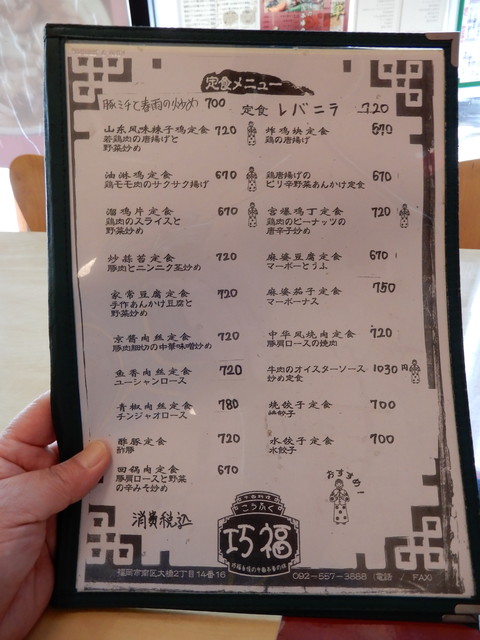 定食メニュー
豚ミチと春雨の炒め 700
定食 レバニラ 720
山东风味辣子鸡定食 720
若鶏肉の唐揚げと
野菜炒め
炸鸡块定食 570
鶏の唐揚げ
油淋鸡定食 670
鶏モモ肉のサクサク揚げ
鶏唐揚げの 670
ピリ辛野菜あんかけ定食
溜鸡片定食 670
鶏肉のスライスと
野菜炒め
宫爆鸡丁定食 720
鶏肉のピーナッツの
唐辛子炒め
炒蒜苔定食 720
豚肉とニンニク茎炒め
麻婆豆腐定食 670
マーボーとうふ
家常豆腐定食 720
手作あんかけ豆腐と
野菜炒め
麻婆茄子定食 750
マーボーナス
京酱肉丝定食 720
豚肉細切の中華味噌炒め
中华风烧肉定食 720
豚肩ロースの焼肉
鱼香肉丝定食 720
ユーシャンロース
牛肉のオイスターソース 1030円
炒め定食
青椒肉丝定食 780
チンジャオロース
烧餃子定食 700
焼餃子
酢豚定食 720
酢豚
水餃子定食 700
水餃子
回锅肉定食 670
豚肩ロースと野菜
の辛みそ炒め
おすすめ!
消費税込
こうふく
巧福
福岡市南区大橋2丁目14番16
092-557-3888 (電話 / FAX)